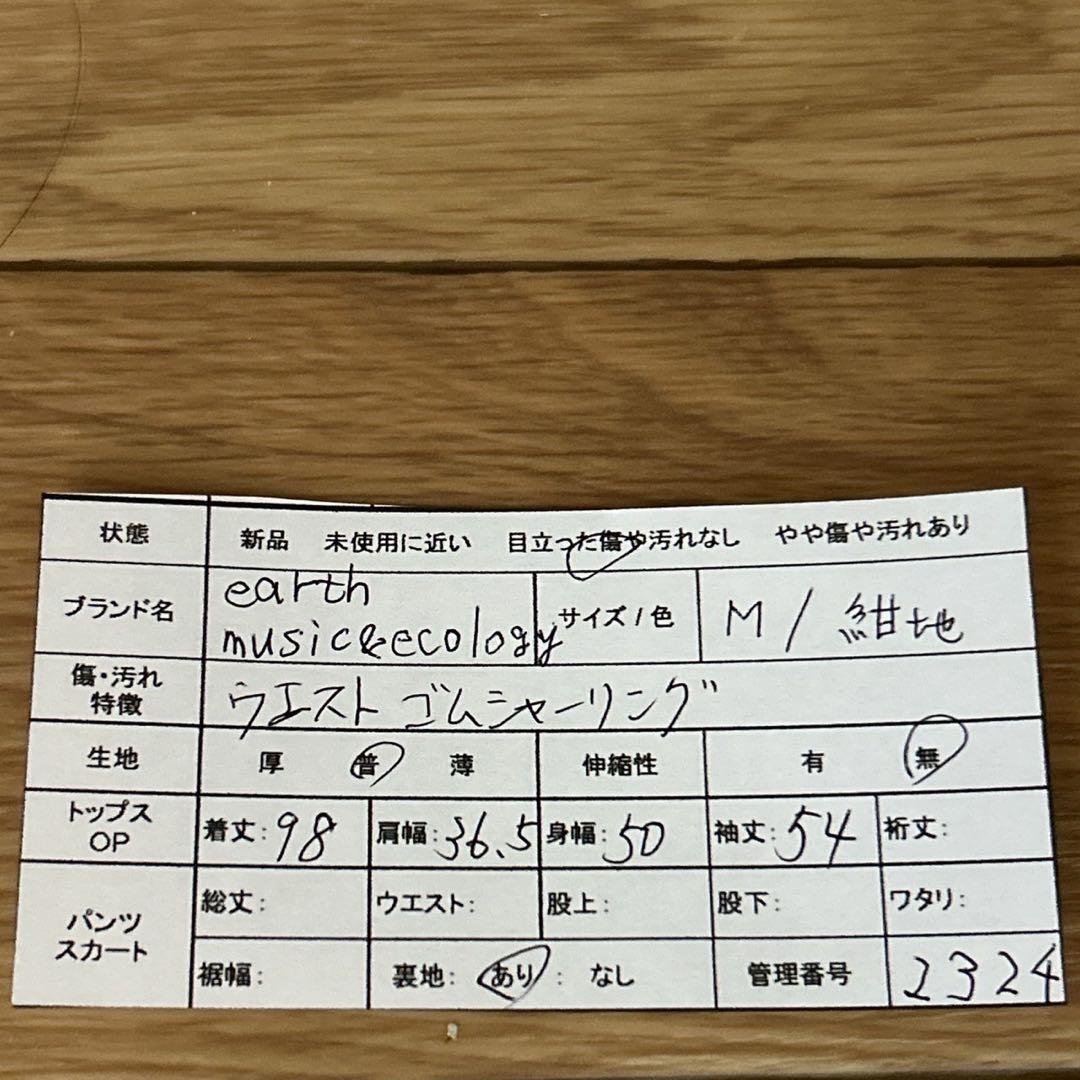 状態 新品 未使用に近い 目立った傷や汚れなし やや傷や汚れあり
ブランド名 earth music&ecology サイズ/色 M/紺地
傷・汚れ 特徴 ウエストゴムシャーリング
生地 厚 普 薄 伸縮性 有 無
トップス OP 着丈:98 肩幅:36.5 身幅:50 袖丈:54 裄丈:
パンツ スカート 総丈: ウエスト: 股上: 股下: ワタリ:
裾幅: 裏地: あり : なし 管理番号 2324